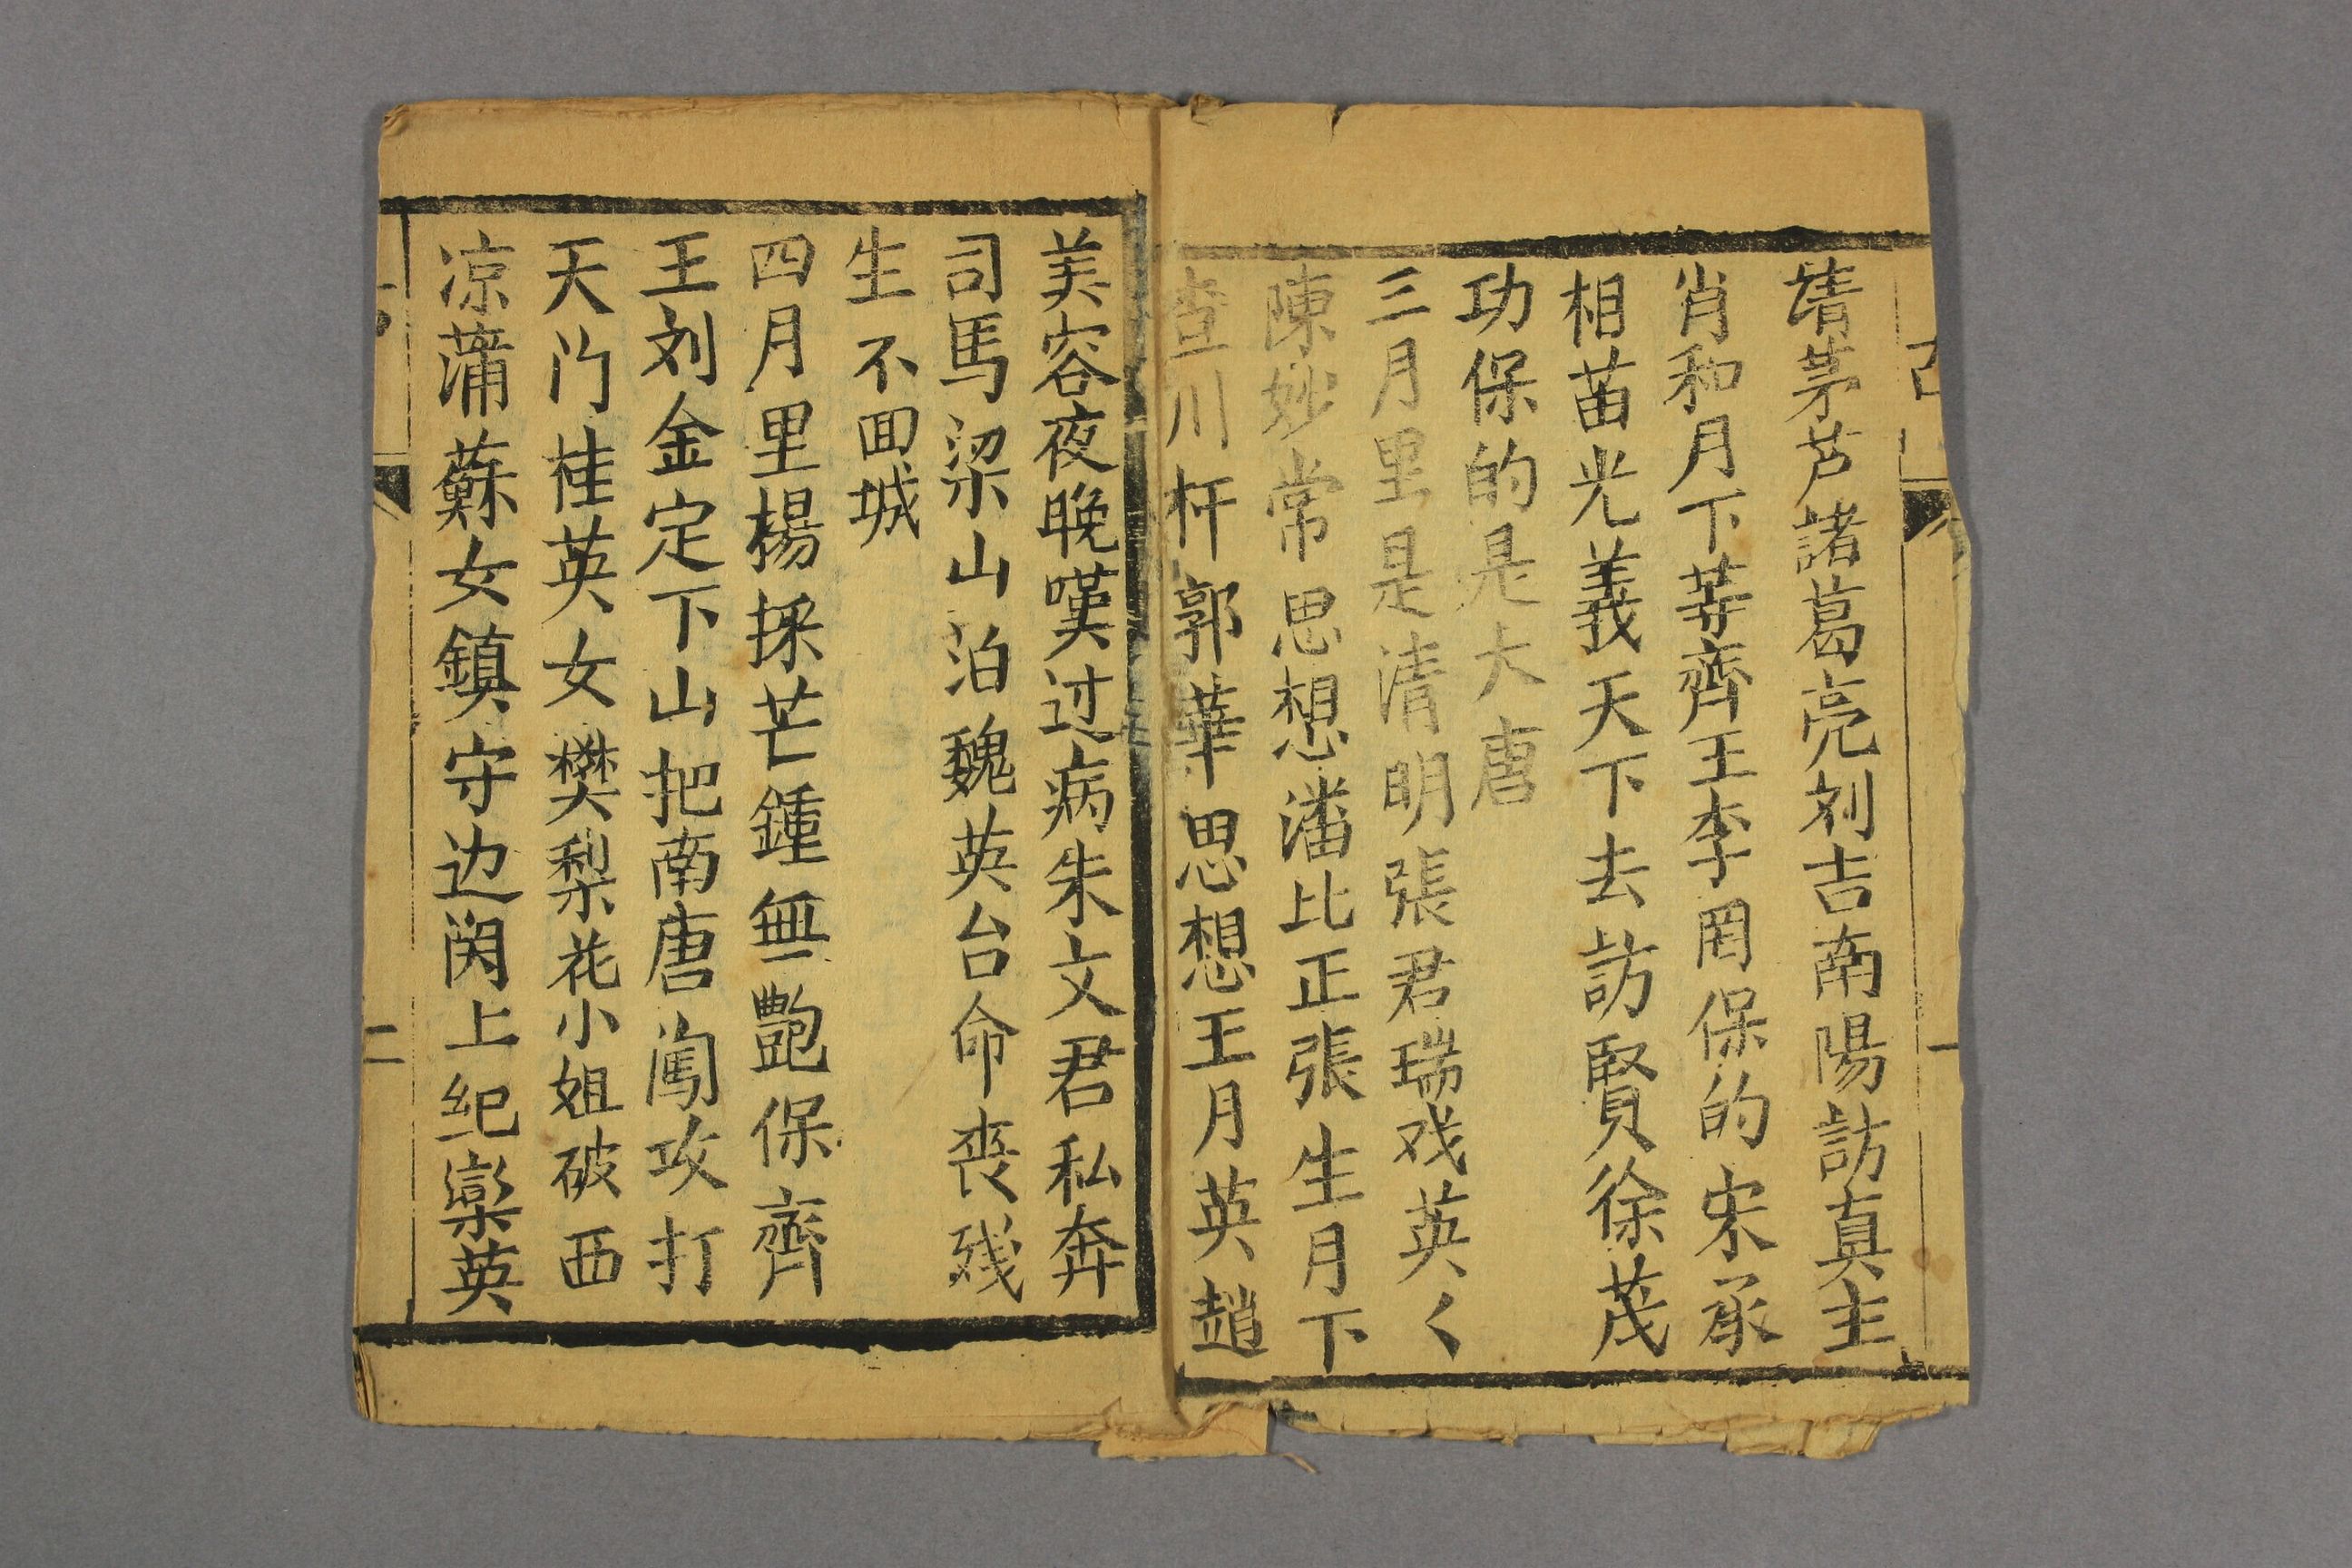 請茅芦諸葛亮刘吉南陽訪真主
肖和月下莽齊王李罔保的宋承
相苗光義天下去訪賢徐茂
功保的是大唐
三月里是清明張君瑞戏英く
陳妙常思想潘比正張生月下
查川杆郭華思想王月英趙
美容夜晚嘆过病朱文君私奔
司馬梁山泊魏英台命丧残
生不回城
四月里楊採芒鍾無艷保齊
王刘金定下山把南唐闖攻打
天门桂英女樊梨花小姐破西
凉蒲蘇女鎮守边関上纪欒英
一
二